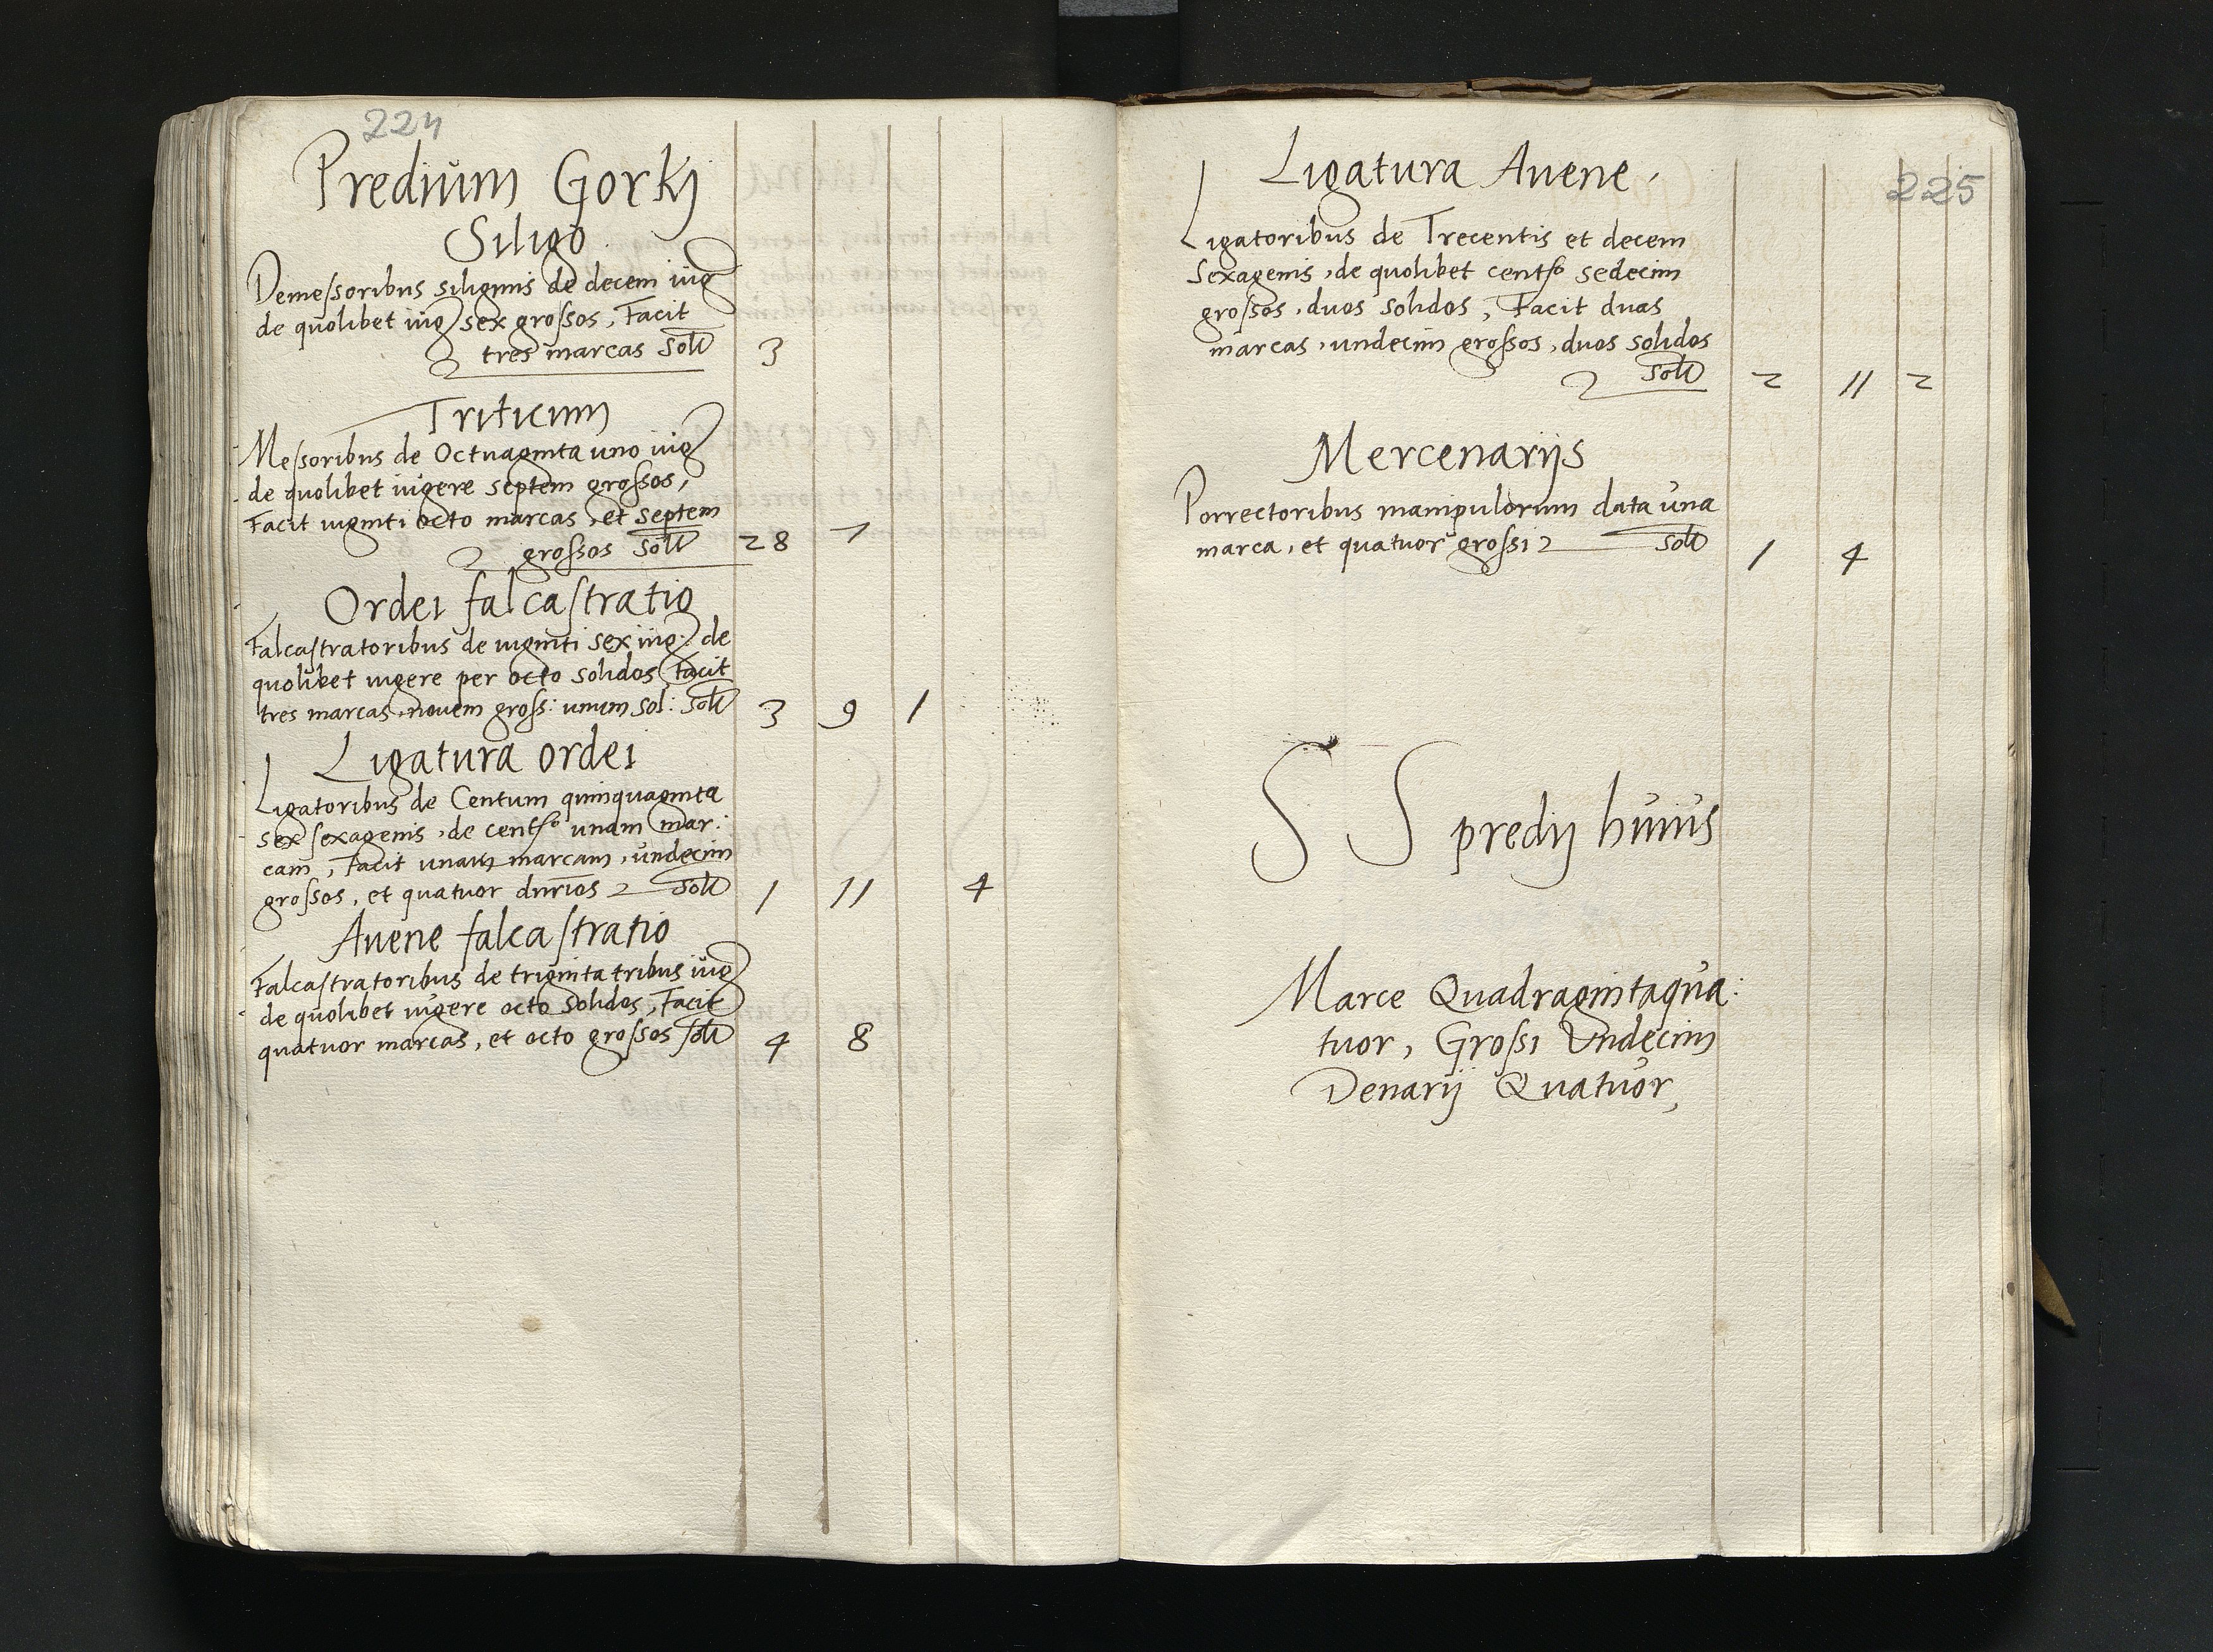 224
Predium Gorkj
Siligo
Demessoribus siliginis de decem iug
de quolibet iug sex grossos, Facit
tres marcas Solt 3
Triticum
Messoribus de Octuaginta uno iug
de quolibet iugere septem grossos,
Facit viginti octo marcas, et septem
grossos Solt 28 7
Ordei falcastratio
Falcastratoribus de viginti sex iug: de
quolibet iugere per octo solidos, Facit
tres marcas, novem gross: unum sol: Solt 3 9 1
Ligatura ordei
Ligatoribus de Centum quinquaginta
sex sexagenis, de cent unam mar:
cam, Facit unam marcam, undecim
grossos, et quatuor dnrios Solt 1 11 4
Avene falcastratio
Falcastratoribus de triginta tribus iug
de quolibet iugere octo solidos, Facit
quatuor marcas, et octo grossos solt 4 8
225
Ligatura Avene.
Ligatoribus de Trecentis et decem
Sexagenis, de quolibet cent sedecim
grossos, duos solidos, Facit duas
marcas, undecim grossos, duos solidos
Solt 2 11 2
Mercenarijs
Porrectoribus manipulorum data una
marca, et quatuor grossi Solt 1 4
S S predij huius
Marce Quadragintaqua:
tuor, Grossi Undecim
Denarij Quatuor,